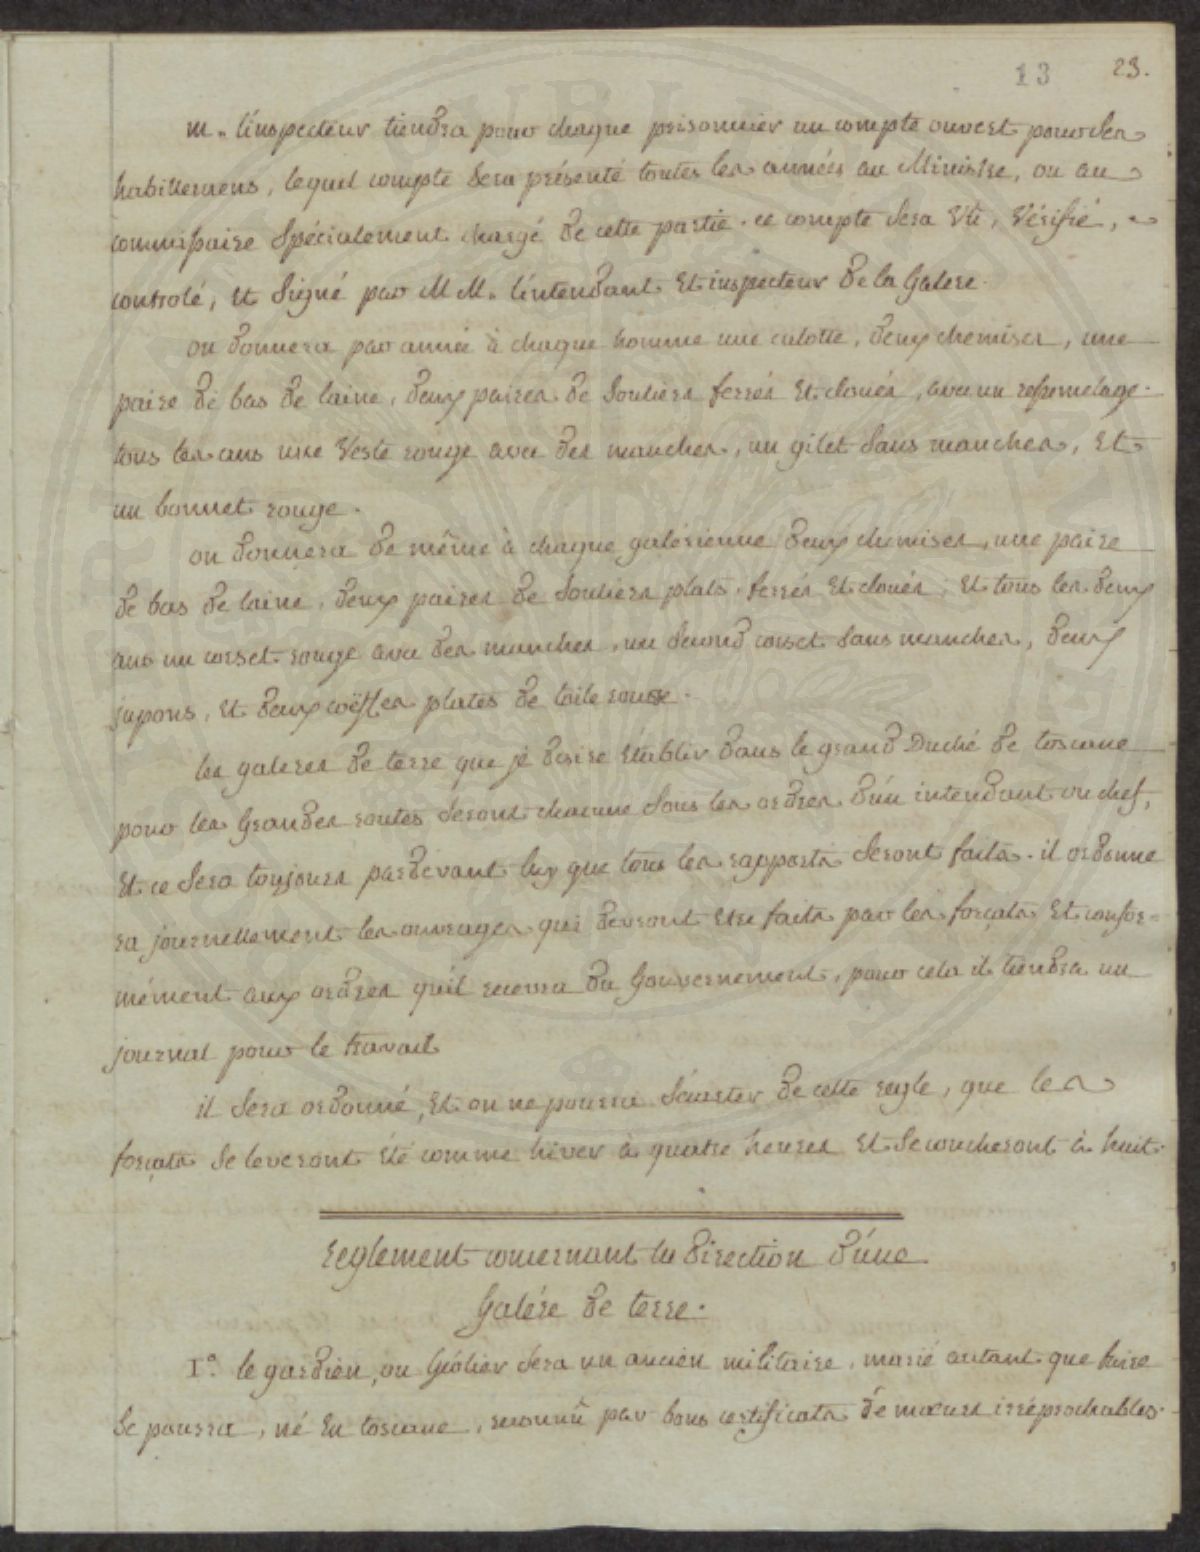 13 23.
m. l'inspecteur tiendra pour chaque prisonnier un compte ouvert pour les
habillemens, lequel compte sera présenté toutes les années au Ministre, ou au
commissaire spécialement chargé de cette partie. ce compte sera vû, vérifié,
controlé, et signé par M M. l'intendant et inspecteur de la Galere.
on donnera par année à chaque homme une culotte, deux chemises, une
paire de bas de laine, deux paires de souliers ferrés et cloués, avec un
tous les ans une veste rouge avec des manches, un gilet sans manches, et
un bonnet rouge.
on donnera de même à chaque galérienne deux chemises, une paire
de bas de laine, deux paires de souliers plats, ferrés et cloués, et tous les deux
ans un corset rouge avec des manches, un second corset sans manches, deux
jupons, et deux coëffes plates de toile rousse.
les galeres de terre que je desire établir dans le grand Duché de toscane
pour les Grandes routes seront chacune sous les ordres d'un intendant en chef,
et ce sera toujours pardevant luy que tous les rapports seront faits. il ordonne
ra journellement les ouvrages qui devront etre faits par les forçats et confor=
mément aux ordres qu'il recevra du Gouvernement, pour cela il tiendra un
journal pour le travail
il sera ordonné, et on ne pourra s'écarter de cette regle, que les
forçats se leveront été comme hiver à quatre heures et se coucheront à huit.
reglement concernant la direction d'une
Galére de terre.
1.° le gardien, ou Géolier sera un ancien militaire, marié autant que faire
se pourra, né en toscane, reconnû par bons certificats de mœurs irréprochables.